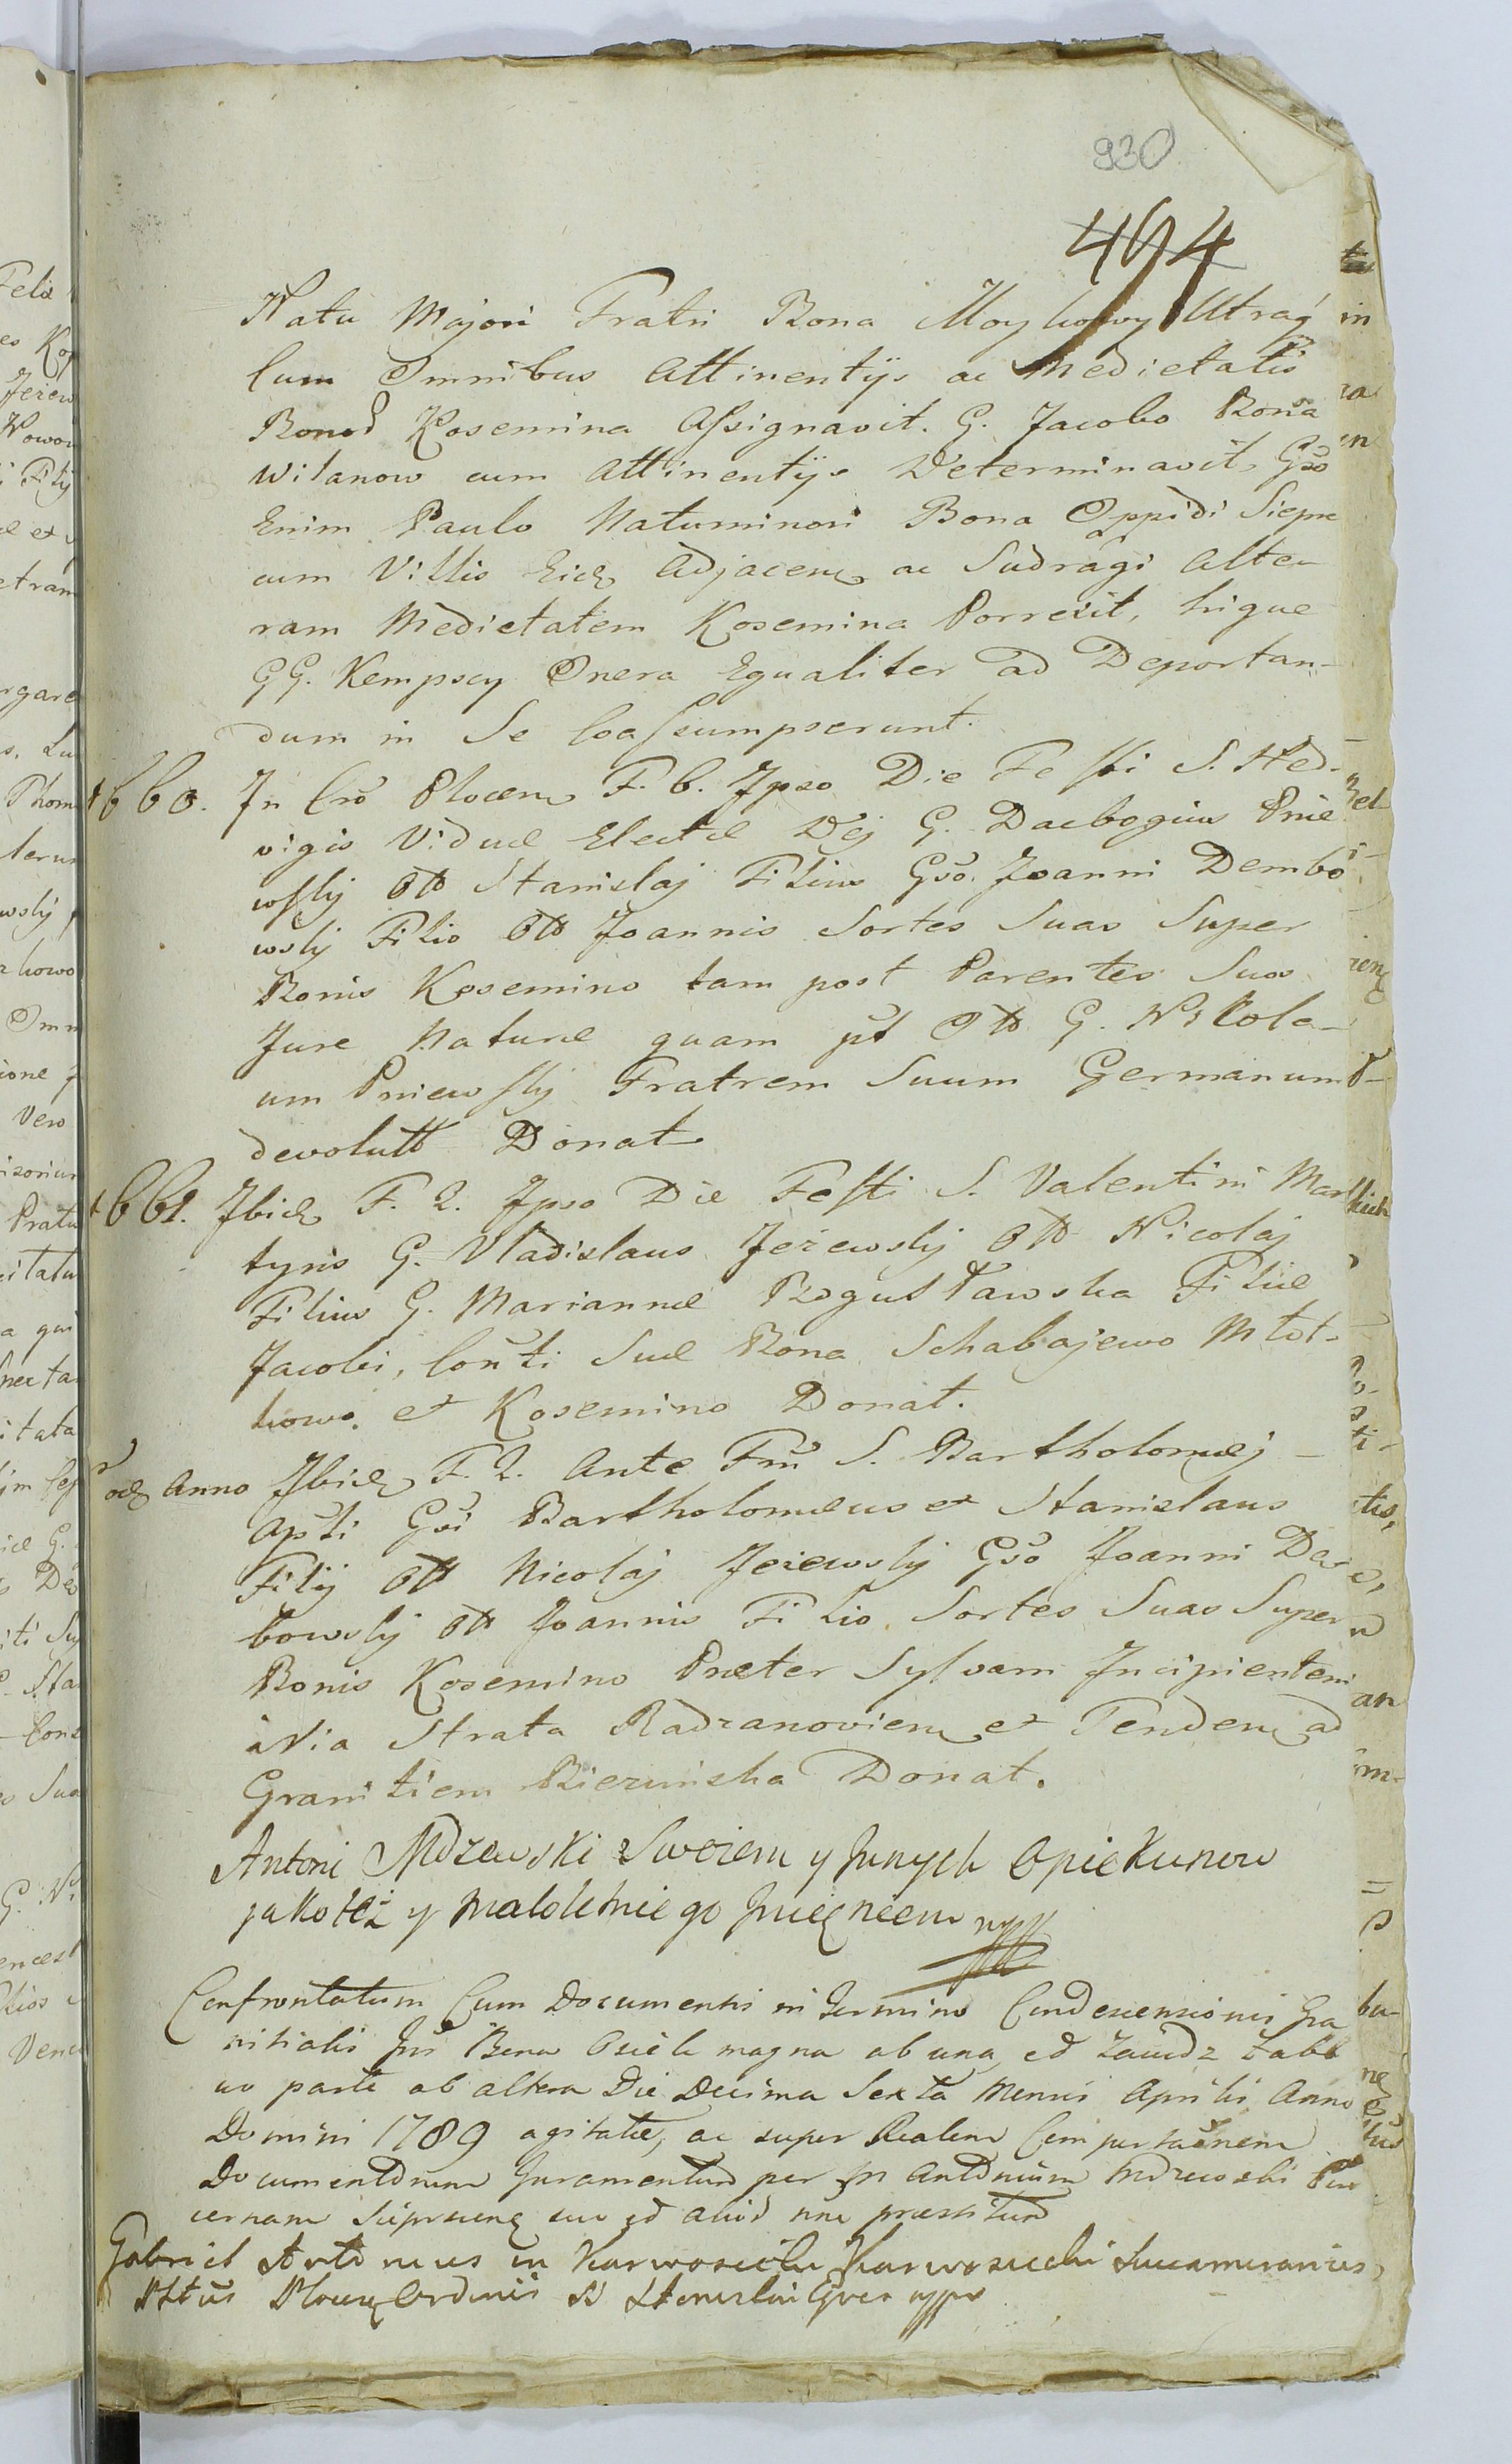 930
494
Natu Majori Fratri Bona Moykowy Utraq
Cum Omnibus Attinentijs ac Medietatis
Bonod Kosemina Assignavit. G. Jacobo Bona
Wilanow cum Attinentijs Determinavit, Gso
Enim Paulo Natuminori Bona Oppidi Siepre
cum Villis Eid Adjacen ac Sudragi Alte-
ram Medietatem Kosemina Porrexit, hique
GG. Kempscy Onera Equaliter ad Deportan-
dum in Se Coassumpserunt.
1660. In Cro Plocen F. 6. Ipso Die Festi S. Hed-
vigis Viduæ Electæ Dej G. Dacbogius Pnie
wskij Olt Stanislaj Filius Gso. Joanni Dembo
wskij Filio Olt Joannis Sortes Suas Super
Bonis Kosemino tam post Parentes Suos
Jure Naturæ quam pst Olt G. Nikola-
um Pniewskij Fratrem Suum Germanum
devolutt Donat
1661. Ibid F. 2. Ipso Die Festi S. Valentini Mar
tyris G. Vladislaus Jeżewskij Olt Nicolaj
Filius G. Mariannæ Bogusławska Filiæ
Jacobi, Conti Suæ Bona Schabajewo Młot-
kowo et Kosemino Donat.
eod Anno Ibid F. 2. Ante Fm S. Bartholomæj
Apsti Gsi Bartholomæus et Stanislaus
Filij Olt Nicolaj Jeżewskij Gso Joanni De
bowskij Olt Joannis Filio Sortes Suas Super
Bonis Kosemino Præter Sylvam Incipientem
a Via Strata Radzanovien et Tenden ad
Granitiem Biezuńska Donat.
Antoni Mdzewski Swoiem y Innych Opiekunow
jakoteż y Maloletniego Imięniem mpp
Confrontatum Cum Documentis in Termino Condescensionis Gra
nitialis Int Bona Osiek magna ab una, ed
wo parte ab altera Die Decima Sexta Mensis Aprilis Anno
Domini 1789 agitatæ, ac super Realem Comportaonem
Documentorum Juramentum per Antonium Mdzewski
cernam suo præstitum
Gabriel Antonius in Karwosieki Karwosiecki Succamerarius
Pltus Plocen Ordinis S Stanislai Eques mpp